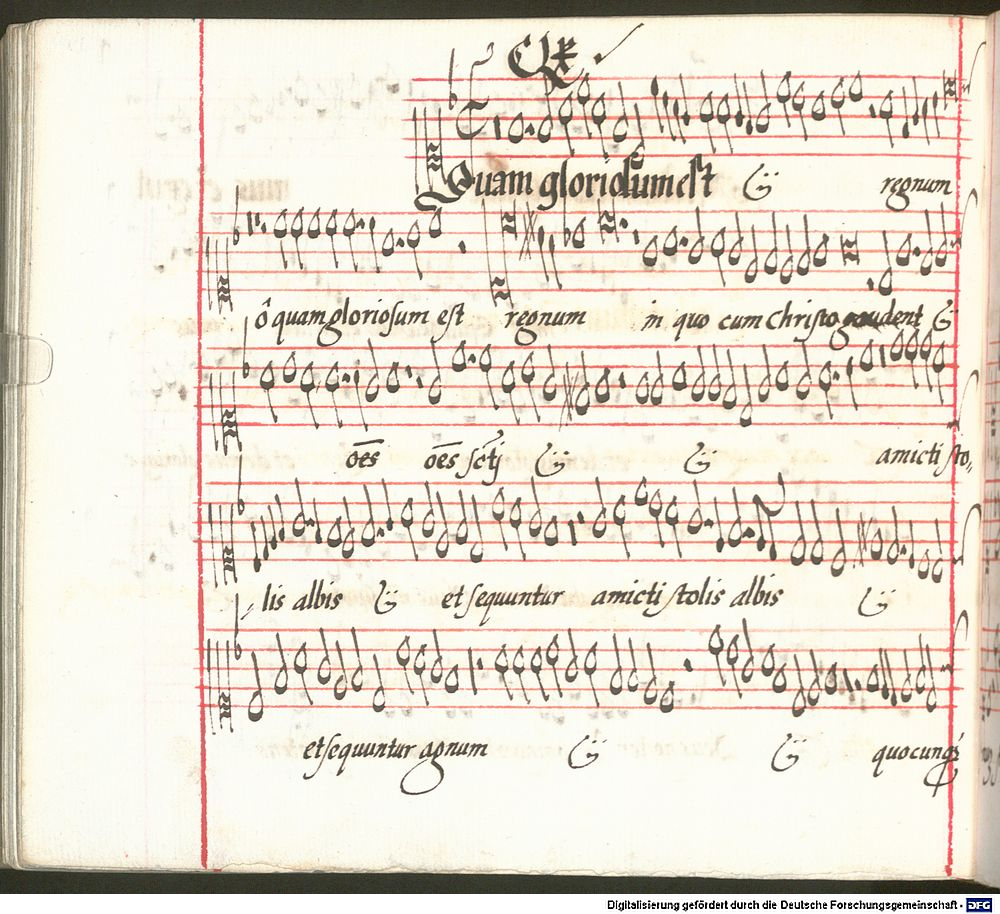 CLX
Quam gloriosum est ij regnum
ō quam gloriosum est regnum in quo cum Christo gaudent ij
oēs oēs sctj ij ij amicti sto„
lis albis ij et sequuntur amicti stolis albis ij
et sequuntur agnum ij ij quocunqz
Digitalisierung gefördert durch die Deutsche Forschungsgemeinschaft - DFG